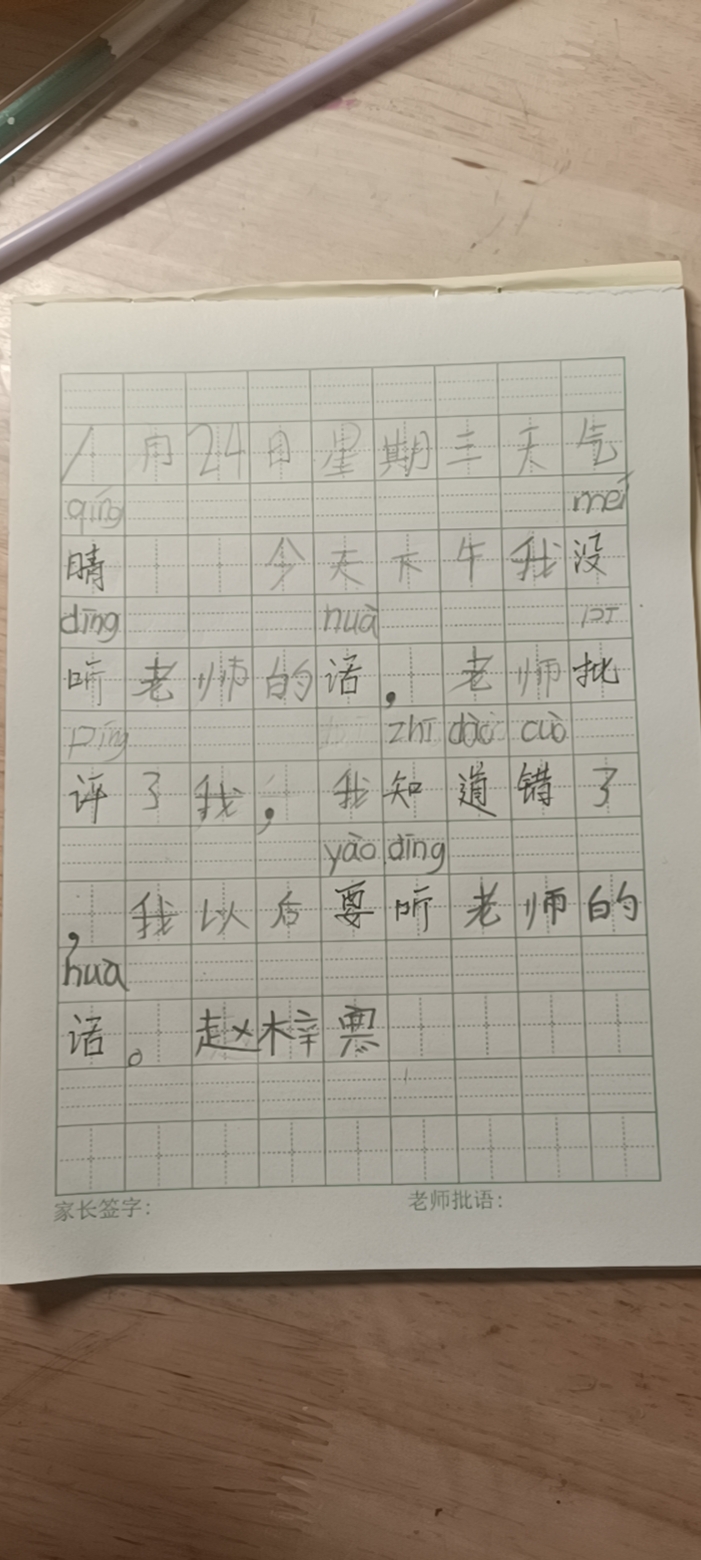 1月24日星期三天气
qíng méi
晴 今天下午我没
dīng huà pī
听老师的话，老师批
píng zhī dào cuò
评了我，我知道错了
yào dīng
，我以后要听老师的
huà
话。赵梓
家长签字： 老师批语：